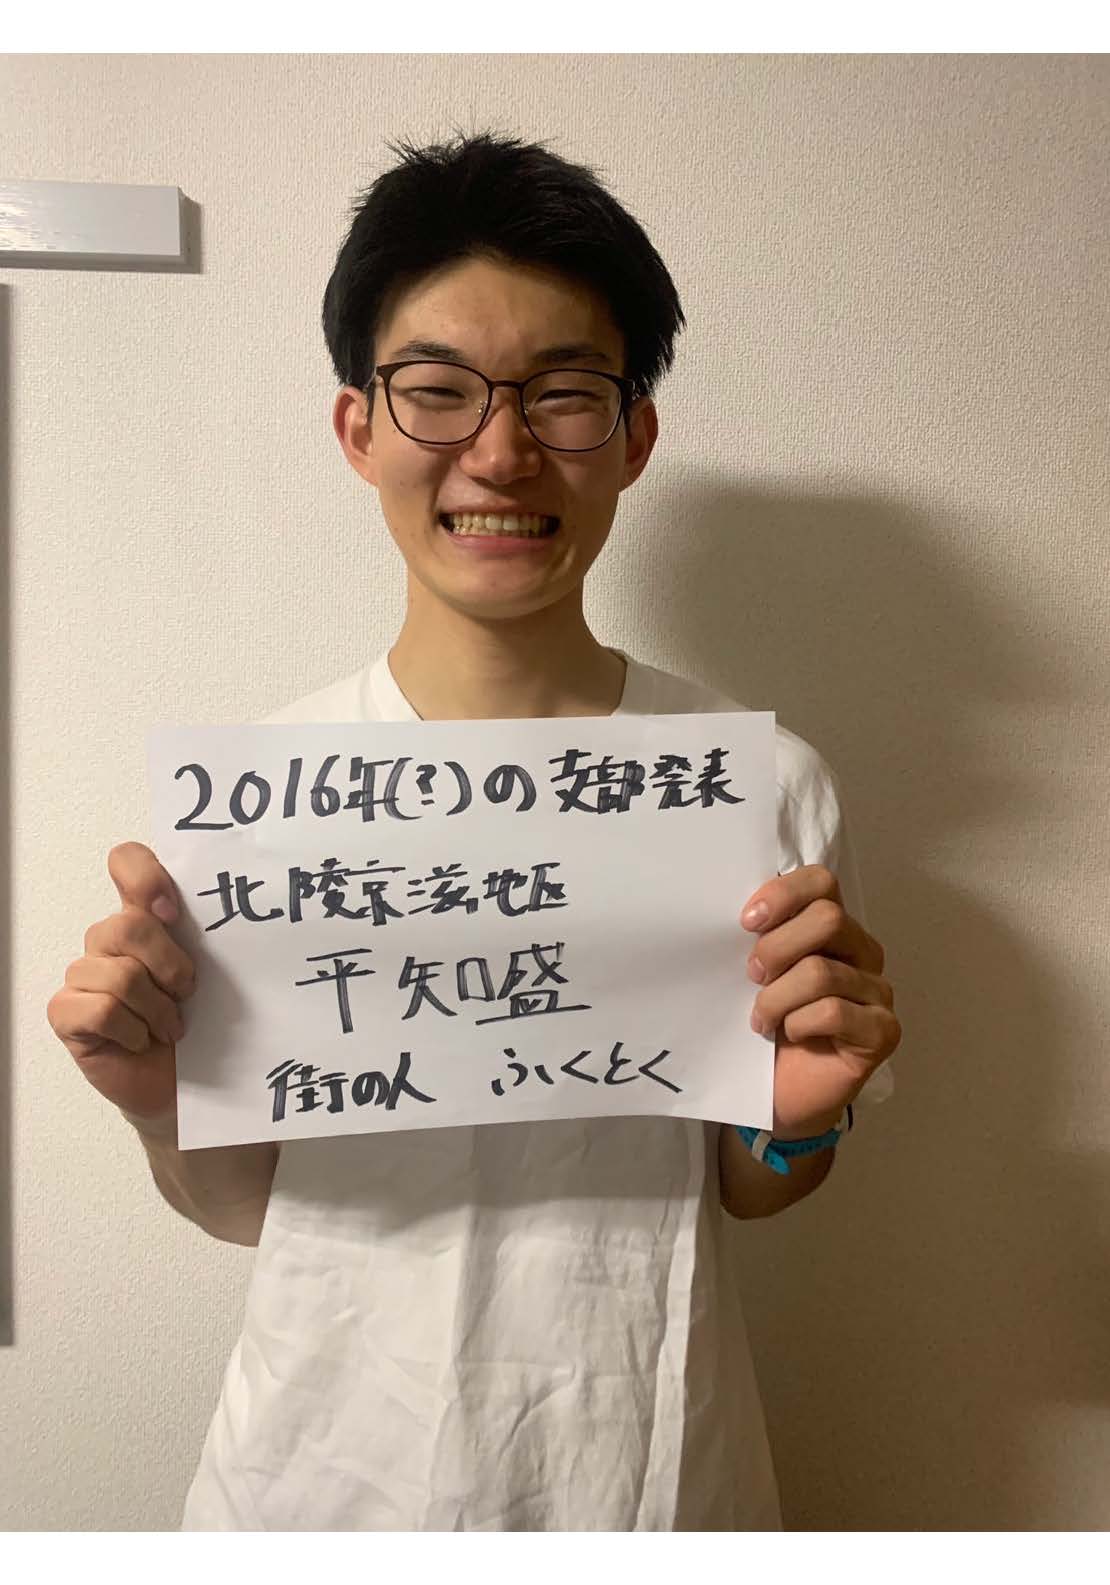 2016年(?)の支部発表
北陵京滋地区
平知盛
街の人 ふくとく